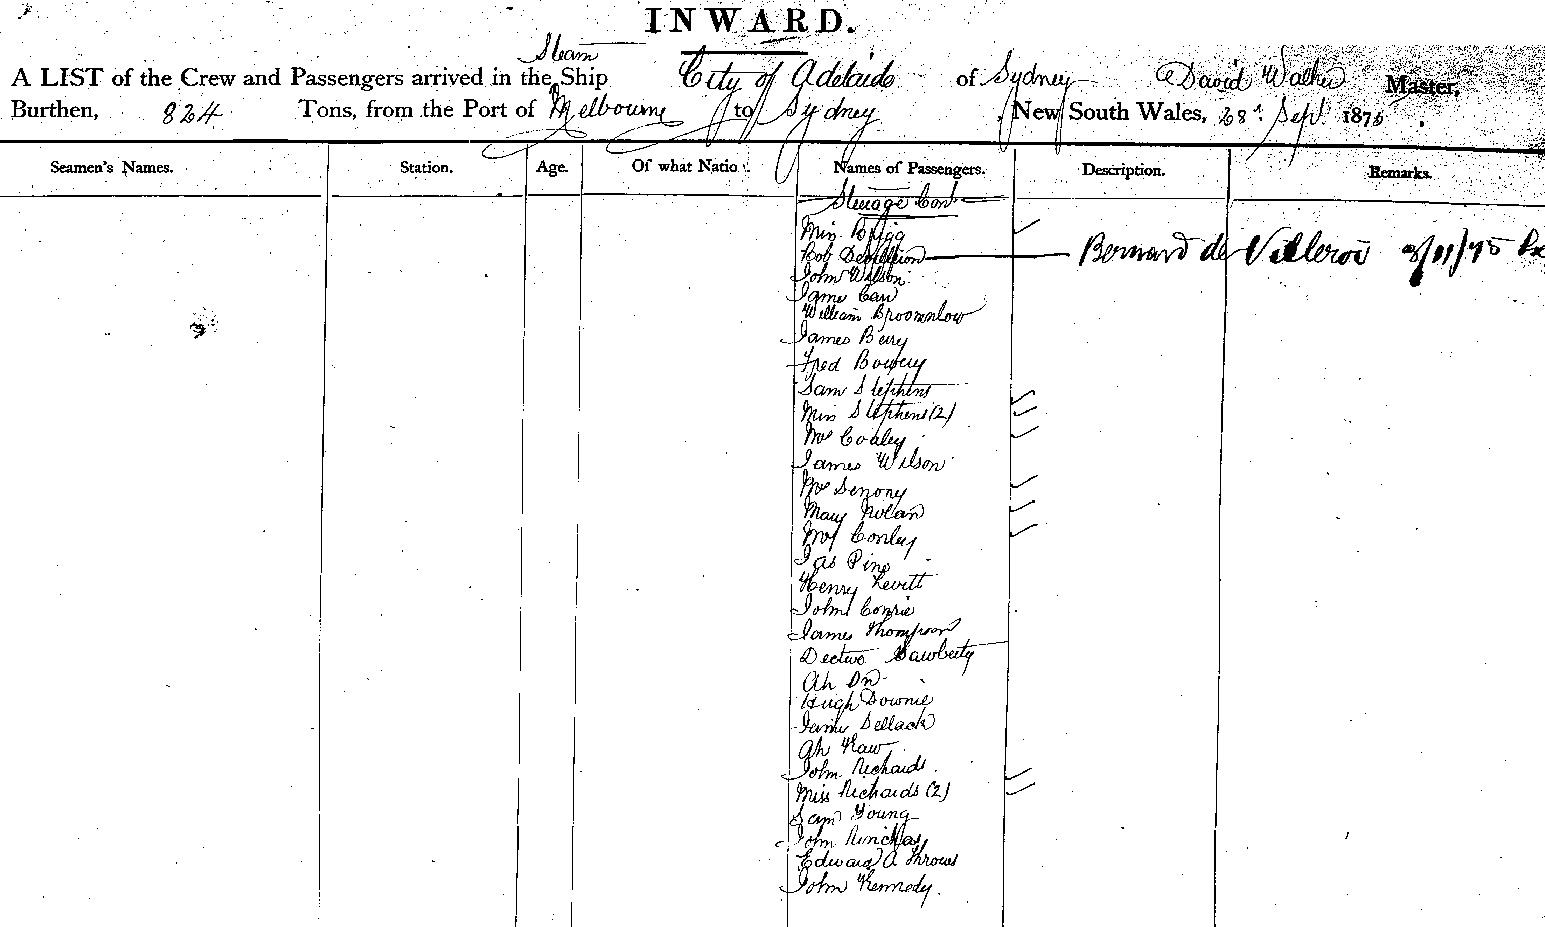 INWARD.
Steam
A LIST of the Crew and Passengers arrived in the Ship City of Adelaide of Sydney David Walker Master,
Burthen, 824 Tons, from the Port of Melbourne to Sydney New South Wales, 28th Sept 1875
Seamen's Names. Station. Age. Of what Natio Names of Passengers. Description. Remarks.
Steerage Cont
Miss Brigg
Rob Bernard de Villeroi 3/11/75
John Wilson
James Carr
William Broomnlow
James Berry
Fred Bowery
Sam Stephens
Miss Stephens (2)
Mrs Coaley
James Wilson
Mrs Senony
Mary Nolan
Mrs Conley
Jas Pine
Henry Levitt
John Conrie
James Thompson
Ah On
Hugh Downie
James Sellack
Ah Kaw
John Richards
Miss Richards (2)
Sam Young
John
Edward A Throws
John Kennedy.